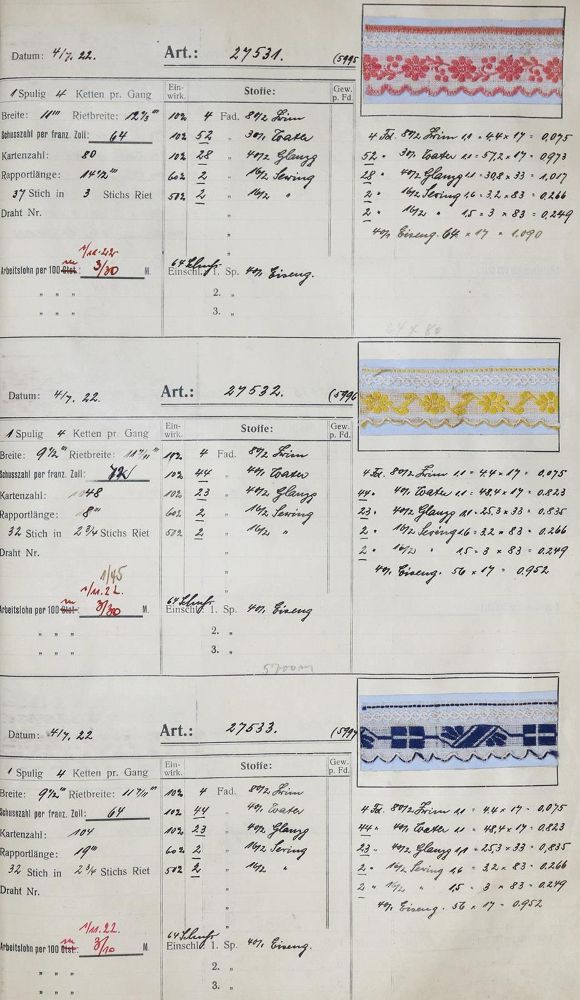 Datum: 4/7. 22. Art.: 27531. (5995
1 Spulig 4 Ketten pr. Gang Ein-wirk. Stoffe: Gew. p. Fd.
Breite: 11''' Rietbreite: 10% 4 Fad. 80/2
Schusszahl per franz. Zoll: 64 10% 52 " 30/1 Water
Kartenzahl: 80 10% 28 " 40/2 Glanzg
Rapportlänge: 14 1/2''' 60% 2 " 16/2
37 Stich in 3 Stichs Riet 50% 2 " 16/2 "
Draht Nr. "
"
4 Fd. 80/2 1,1 = 4,4 × 17 = 0,075
52 " 30/1 Water 1,1 = 57,2 × 17 = 0,973
28 " 40/2 Glanzg 1,1 = 30,8 × 33 = 1,017
2 " 16/2 1,6 = 3,2 × 83 = 0,266
2 " 16/2 " 1,5 = 3 × 83 = 0,249
40/1 Eiseng. 64 × 17 = 1,090
1/11. 22
Arbeitslohn per 100 Gtst.: m 3/30 M. 64 Schuss
Einschl. 1. Sp. 40/1 Eiseng.
" " " 2. "
" " " 3. "
64 x 80
Datum: 4/7. 22. Art.: 27532. (5996
1 Spulig 4 Ketten pr. Gang Ein-wirk. Stoffe: Gew. p. Fd.
Breite: 9 1/2''' Rietbreite: 4 Fad. 80/2
Schusszahl per franz. Zoll: 72 10% 44 " 40/1 Water
Kartenzahl: 48 10% 23 " 40/2 Glanzg
Rapportlänge: 8''' 60% 2 " 16/2
32 Stich in 2 3/4 Stichs Riet 50% 2 " 16/2 "
Draht Nr. "
"
4 Fd. 80/2 1,1 = 4,4 × 17 = 0,075
44 " 40/1 Water 1,1 = 48,4 × 17 = 0.823
23 " 40/2 Glanzg 1,1 = 25,3 × 33 = 0,835
2 " 16/2 1,6 = 3,2 × 83 = 0.266
2 " 16/2 " 1,5 = 3 × 83 = 0,249
40/1 Eiseng. 56 × 17 = 0.952
1/45
1/11. 22.
Arbeitslohn per 100 Gtst.: m 3/30 M. 64 Schuss
Einschl. 1. Sp. 40/1 Eiseng
" " " 2. "
" " " 3. "
5700 m
Datum: 4/7. 22 Art.: 27533. (5997
1 Spulig 4 Ketten pr. Gang Ein-wirk. Stoffe: Gew. p. Fd.
Breite: 9 1/2''' Rietbreite: 10% 4 Fad. 80/2
Schusszahl per franz. Zoll: 64 10% 44 " 40/1 Water
Kartenzahl: 104 10% 23 " 40/2 Glanzg
Rapportlänge: 19''' 60% 2 " 16/2
32 Stich in 2 3/4 Stichs Riet 50% 2 " 16/2 "
Draht Nr. "
"
4 Fd. 80/2 1,1 = 4,4 × 17 = 0,075
44 " 40/1 Water 1,1 = 48,4 × 17 = 0.823
23 " 40/2 Glanzg 1,1 = 25,3 × 33 = 0,835
2 " 16/2 1,6 = 3,2 × 83 = 0.266
2 " 16/2 " 1,5 = 3 × 83 = 0.249
40/1 Eiseng. 56 × 17 = 0.952
1/11. 22.
Arbeitslohn per 100 Gtst.: m 3/10 M. 64 Schuss
Einschl. 1. Sp. 40/1 Eiseng.
" " " 2. "
" " " 3. "